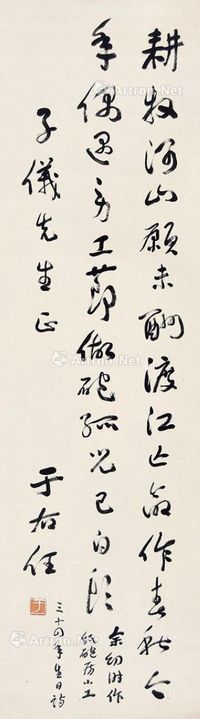 耕牧河山願未酬渡江亡命作春秋今
年偶遇勞工節做砲孤兒已白頭
余幼時作
紙砲房小工
三十四年生日詩
子儀先生正
于右任
Artron.Net